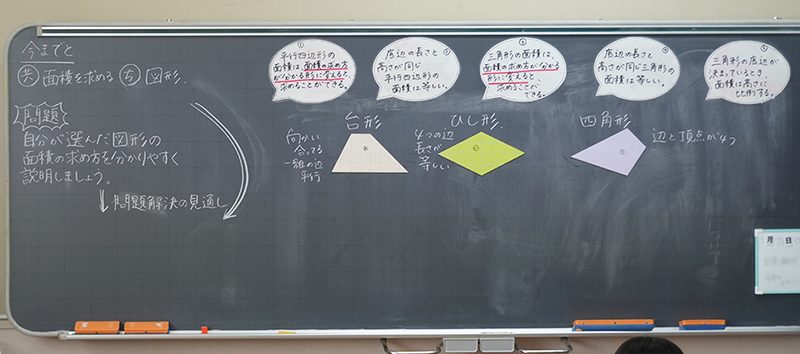 今までと
共 面積を求める ち 図形.
問題
自分が選んだ図形の
面積の求め方を分かりやすく
説明しましょう。
問題解決の見通し
①
平行四辺形の
面積は、面積の求め方
が分かる形に変えると、
求めることができる。
②
底辺の長さと
高さが同じ
平行四辺形の
面積は等しい。
③
三角形の面積は、
面積の求め方が分かる
形に変えると、
求めることが
できる。
④
底辺の長さと
高さが同じ三角形の
面積は等しい。
⑤
三角形の底辺が
決まっているとき、
面積は高さに
比例する。
台形
向かい
合ってる
一組の辺
平行
ひし形.
4つの辺
長さが
等しい
四角形.
辺と頂点が4つ
月 日